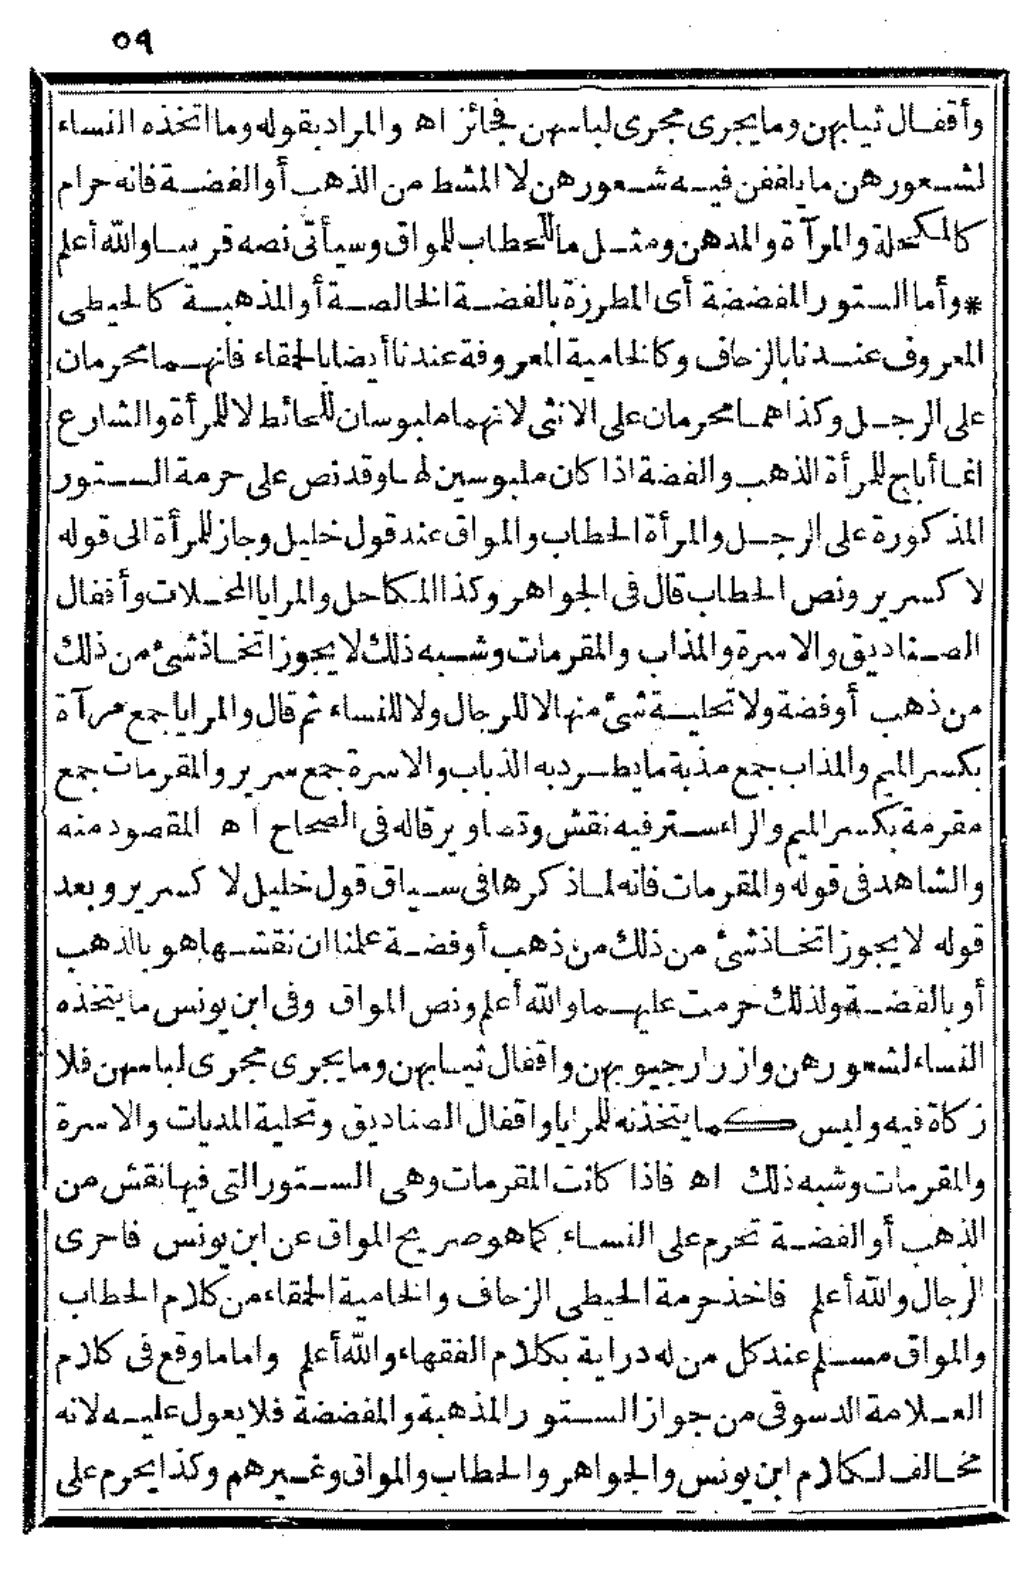 ٥٩
وأقفال ثيابهن وما يجرى مجرى لباسهن فجائز اه والمراد بقوله وما اتخذه النساء
لشعورهن ما يلففن فيه شعورهن لا المشط من الذهب أو الفضة فانه حرام
كالمكحلة والمرآة والمدهن ومثل ما للحطاب للمواق وسيأتى نصه قريبا والله أعلم
* وأما الستور المفضضة أى المطرزة بالفضة الخالصة أو المذهبة كالحيطى
المعروف عندنا بالزحاف وكالخامية المعروفة عندنا أيضا بالخقاء فانهما محرمان
على الرجل وكذا هما محرمان على الانثى لانهما ملبوسان للحائط لا للمرأة والشارع
انما أباح للمرأة الذهب والفضة اذا كان ملبوسين لها وقد نص على حرمة الستور
المذكورة على الرجل والمرأة الحطاب والمواق عند قول خليل وجاز للمرأة الى قوله
لا كسرير ونص الحطاب قال فى الجواهر وكذا المكاحل والمرايا المحلات وأقفال
الصناديق والاسرة والمذاب والمقرمات وشبه ذلك لا يجوز اتخاذ شئ من ذلك
من ذهب أو فضة ولا تحلية شئ منها لا للرجال ولا للنساء ثم قال والمرايا جمع مرآة
بكسر الميم والمذاب جمع مذبة ما يطرد به الذباب والاسرة جمع سرير والمقرمات جمع
مقرمة بكسر الميم والراء ستر فيه نقش وتصاوير قاله فى الصحاح اه المقصود منه
والشاهد فى قوله والمقرمات فانه لما ذكرها فى سياق قول خليل لا كسرير وبعد
قوله لا يجوز اتخاذ شئ من ذلك من ذهب أو فضة علمنا ان نقشها هو بالذهب
أو بالفضة ولذلك حرمت عليهما والله أعلم ونص المواق وفى ابن يونس ما يتخذه
النساء لشعورهن وازرار جيوبهن واقفال ثيابهن وما يجرى مجرى لباسهن فلا
زكاة فيه وليس كما يتخذنه للمرايا واقفال الصناديق وتحلية المديات والاسرة
والمقرمات وشبه ذلك اه فاذا كانت المقرمات وهى الستور التى فيها نقش من
الذهب أو الفضة تحرم على النساء كما هو صريح المواق عن ابن يونس فاحرى
الرجال والله أعلم فاخذ حرمة الحيطى الزحاف والخامية الخقاء من كلام الحطاب
والمواق مسلم عند كل من له دراية بكلام الفقهاء والله أعلم واما ما وقع فى كلام
العلامة الدسوقى من جواز الستور المذهبة والمفضضة فلا يعول عليه لانه
مخالف لكلام ابن يونس والجواهر والحطاب والمواق وغيرهم وكذا يحرم على